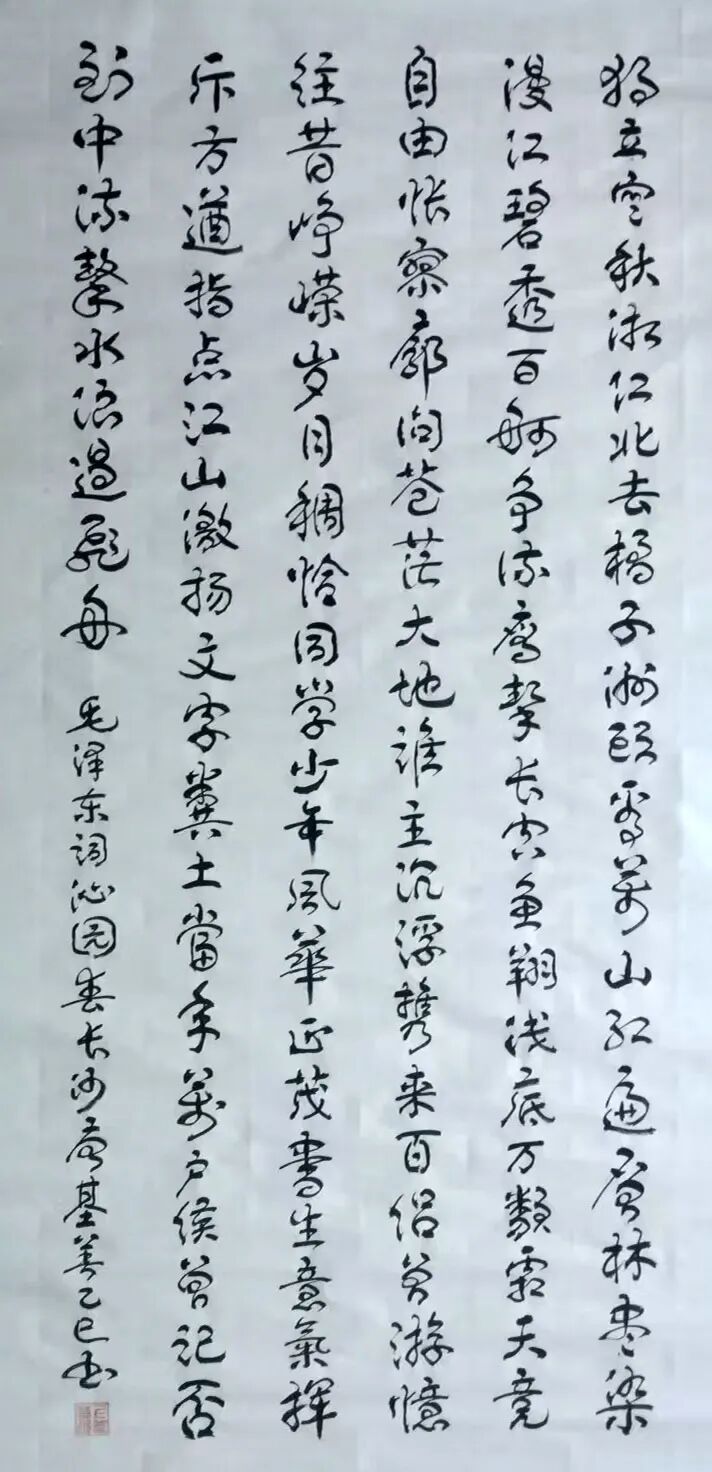 獨立寒秋湘江北去橘子洲頭看萬山红遍層林尽染
漫江碧透百舸争流鹰擊长空鱼翔浅底万類霜天竞
自由怅寥廓向苍茫大地谁主沉浮携来百侣曾游憶
往昔峥嵘岁月稠恰同学少年風華正茂書生意氣揮
斥方遒指点江山激扬文字糞土當年萬户侯曾记否
到中流擊水浪遏飛舟 毛泽东词沁园春长沙 基善乙巳书